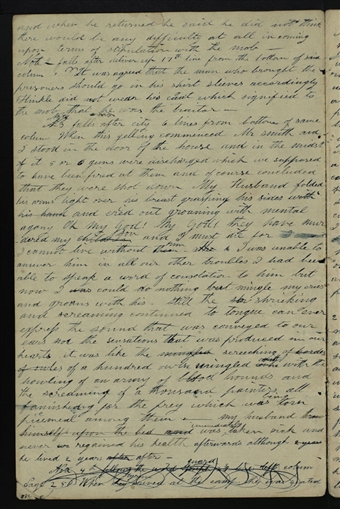 and when he returned he said he did not think
there would be any difficulty at all in coming
upon terms of stipulation with the mob —
No 2 falls after 17th line from the bottom of
column. "It was agreed that the man who brought the
prisoners should go in his shirt sleeves accordingly
Hinkle did not wear his coat which signified to
the mob that he was the traitor —
No 3 falls after city 6 lines from bottom of same
column. When this yelling commenced Mr Smith and
I stood in the door of the house, and in the midst
of it 5 or 6 guns were discharged which we supposed
to have been fired at them and of course concluded
that they were shot down My Husband folded
his arms tight over his breast grasping his sides with
his hand and cried out groaning with mental
agony Oh my God! My God! they have mur
dered my son and I must die for
I cannot live without I was unable to
answer him in all our other troubles I had been
able to speak a word of consolation to him but
now I could do nothing but mingle my cries
and groans with his still the shrieking
and screaming continued no tongue can ever
express the sound that was conveyed to our
ears nor the sensations that was produced in our
hearts it was like the screeching of
of owles of a hundred mingled with the
howling of an army of blood hounds and
the screaming of a thousand panters all
famishing for the prey which was being torn
piecemeal among them my husband threw
himself upon the bed and was immediately taken sick and
never regained his health afterwards although
he lived 2 years after —
No 4 column
page